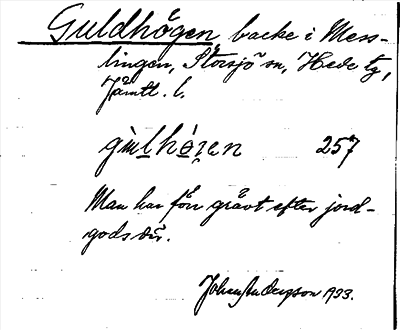 Guldhögen backe i Mess-
lingen, Storsjö sn, Hede tg,
Jämtl. l.
257
Man har förr grävt efter jord-
gods där.
Johan Andersson 1933.